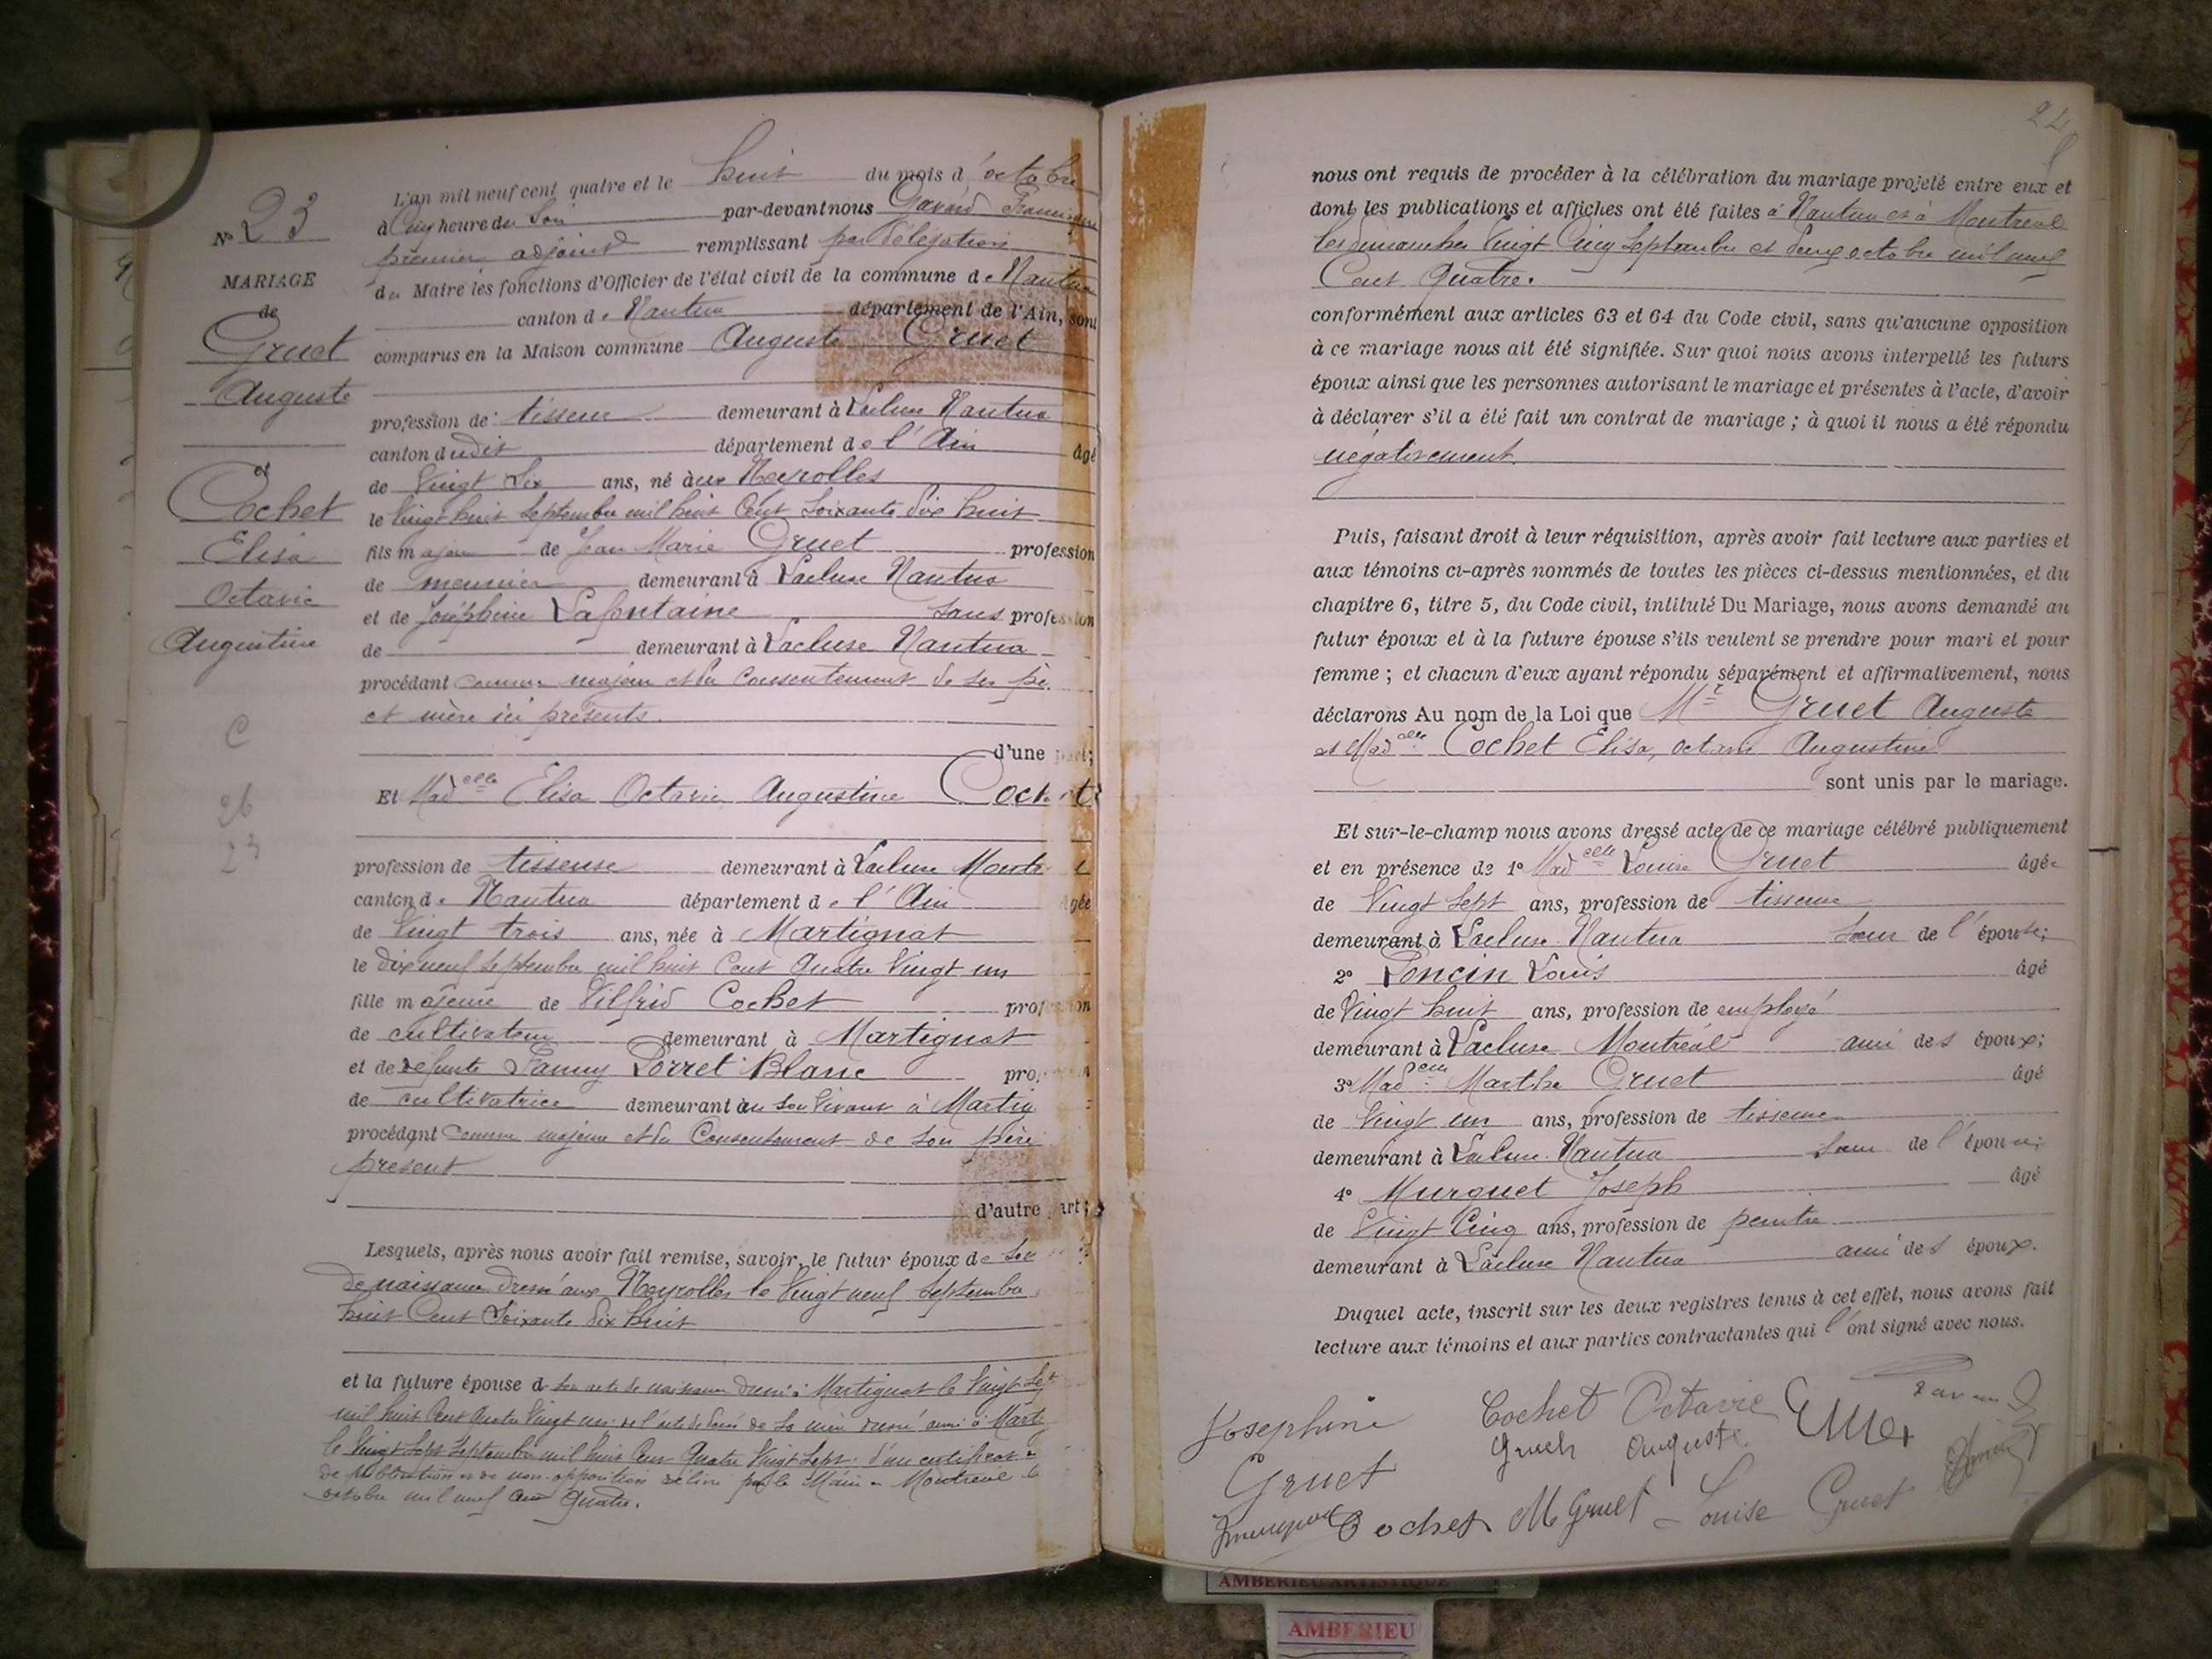 L'an mil neuf cent quatre et le huit du mois d'octobre
à Cinq heure du Soir par-devant nous Gavand
premier adjoint remplissant par Délégation
du Maire les fonctions d'Officier de l'état civil de la commune de Nantua
canton de Nantua département de l'Ain, sont
comparus en la Maison commune Auguste Gruet
profession de tisseur demeurant à Lacluse Nantua
canton dudit département de l'Ain âgé
de Vingt Six ans, né aux Neyrolles
le Vingt huit Septembre mil huit Cent Soixante Dix huit
fils majeur de Jean Marie Gruet profession
de meunier demeurant à Lacluse Nantua
et de Joséphine Lafontaine sans profession
de demeurant à Lacluse Nantua
procédant comme majeur et du Consentement de ses
et mère ici présents.
d'une part;
Et Madelle Elisa Octavie Augustine Cochet
profession de tisseuse demeurant à Lacluse
canton de Nantua département de l'Ain âgée
de Vingt trois ans, née à Martignat
le Dix neuf Septembre mil huit Cent Quatre Vingt un
fille majeure de Vilfrid Cochet profession
de cultivateur demeurant à Martignat
et de défunte Fanny Porret Blanc
de cultivatrice demeurant de son Vivant à
procédant comme majeure et du Consentement de son père
présent
d'autre part;
Lesquels, après nous avoir fait remise, savoir, le futur époux de son
de naissance dressé aux Neyrolles le Vingt neuf Septembre
huit Cent Soixante Dix huit
et la future épouse d son acte de naissance dressé à Martignat le Vingt
mil huit Cent Quatre Vingt un de l'acte de décès de sa mère dressé aussi à
le Vingt Sept Septembre mil huit Cent Quatre Vingt Sept d'un certificat
de publication et de non-opposition délivré par le Maire Montréal le
octobre mil neuf Cent Quatre.
No 23
MARIAGE
de
Gruet
Auguste
et
Cochet
Elisa
Octavie
Augustine
C
26
23
24
nous ont requis de procéder à la célébration du mariage projeté entre eux et
dont les publications et affiches ont été faites à Nantua et à Montreal
les Dimanches Vingt Cinq Septembre et Deux octobre mil neuf
Cent Quatre.
conformément aux articles 63 et 64 du Code civil, sans qu'aucune opposition
à ce mariage nous ait été signifiée. Sur quoi nous avons interpellé les futurs
époux ainsi que les personnes autorisant le mariage et présentes à l'acte, d'avoir
à déclarer s'il a été fait un contrat de mariage ; à quoi il nous a été répondu
négativement.
Puis, faisant droit à leur réquisition, après avoir fait lecture aux parties et
aux témoins ci-après nommés de toutes les pièces ci-dessus mentionnées, et du
chapitre 6, titre 5, du Code civil, intitulé Du Mariage, nous avons demandé au
futur époux et à la future épouse s'ils veulent se prendre pour mari et pour
femme ; et chacun d'eux ayant répondu séparément et affirmativement, nous
déclarons Au nom de la Loi que Mr Gruet Auguste
et Madelle Cochet Elisa, octavie Augustine
sont unis par le mariage.
Et sur-le-champ nous avons dressé acte de ce mariage célébré publiquement
et en présence de 1º Madelle Louise Gruet âgée
de Vingt Sept ans, profession de tisseuse
demeurant à Lacluse Nantua Sœur de l'épouse;
2º Poncin Louis âgé
de Vingt huit ans, profession de employé
demeurant à Lacluse Montréal ami des époux;
3º Madelle Marthe Gruet âgé
de Vingt un ans, profession de tisseuse
demeurant à Lacluse Nantua Sœur de l'époux;
4º Murquet Joseph âgé
de Vingt Cinq ans, profession de peintre
demeurant à Lacluse Nantua ami des époux.
Duquel acte, inscrit sur les deux registres tenus à cet effet, nous avons fait
lecture aux témoins et aux parties contractantes qui l'ont signé avec nous.
Josephine Cochet Octavie
Gruet Auguste
Gruet
Cochet M Gruet Louise Gruet
AMBERIEU ARTISTIQUE
AMBERIEU